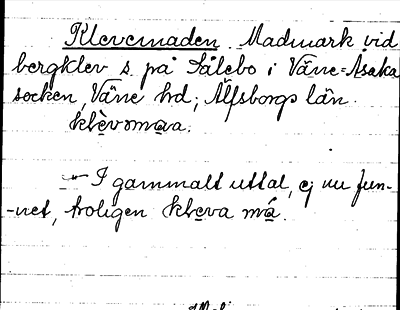 Klevemaden. Madmark vid
bergklev s. på Sålebo i Väne-Åsaka
socken, Väne hd; Älfsborgs län.
klèvəmɑ̲a.
I gammalt uttal, ej nu fun-
-net, troligen kleva må.